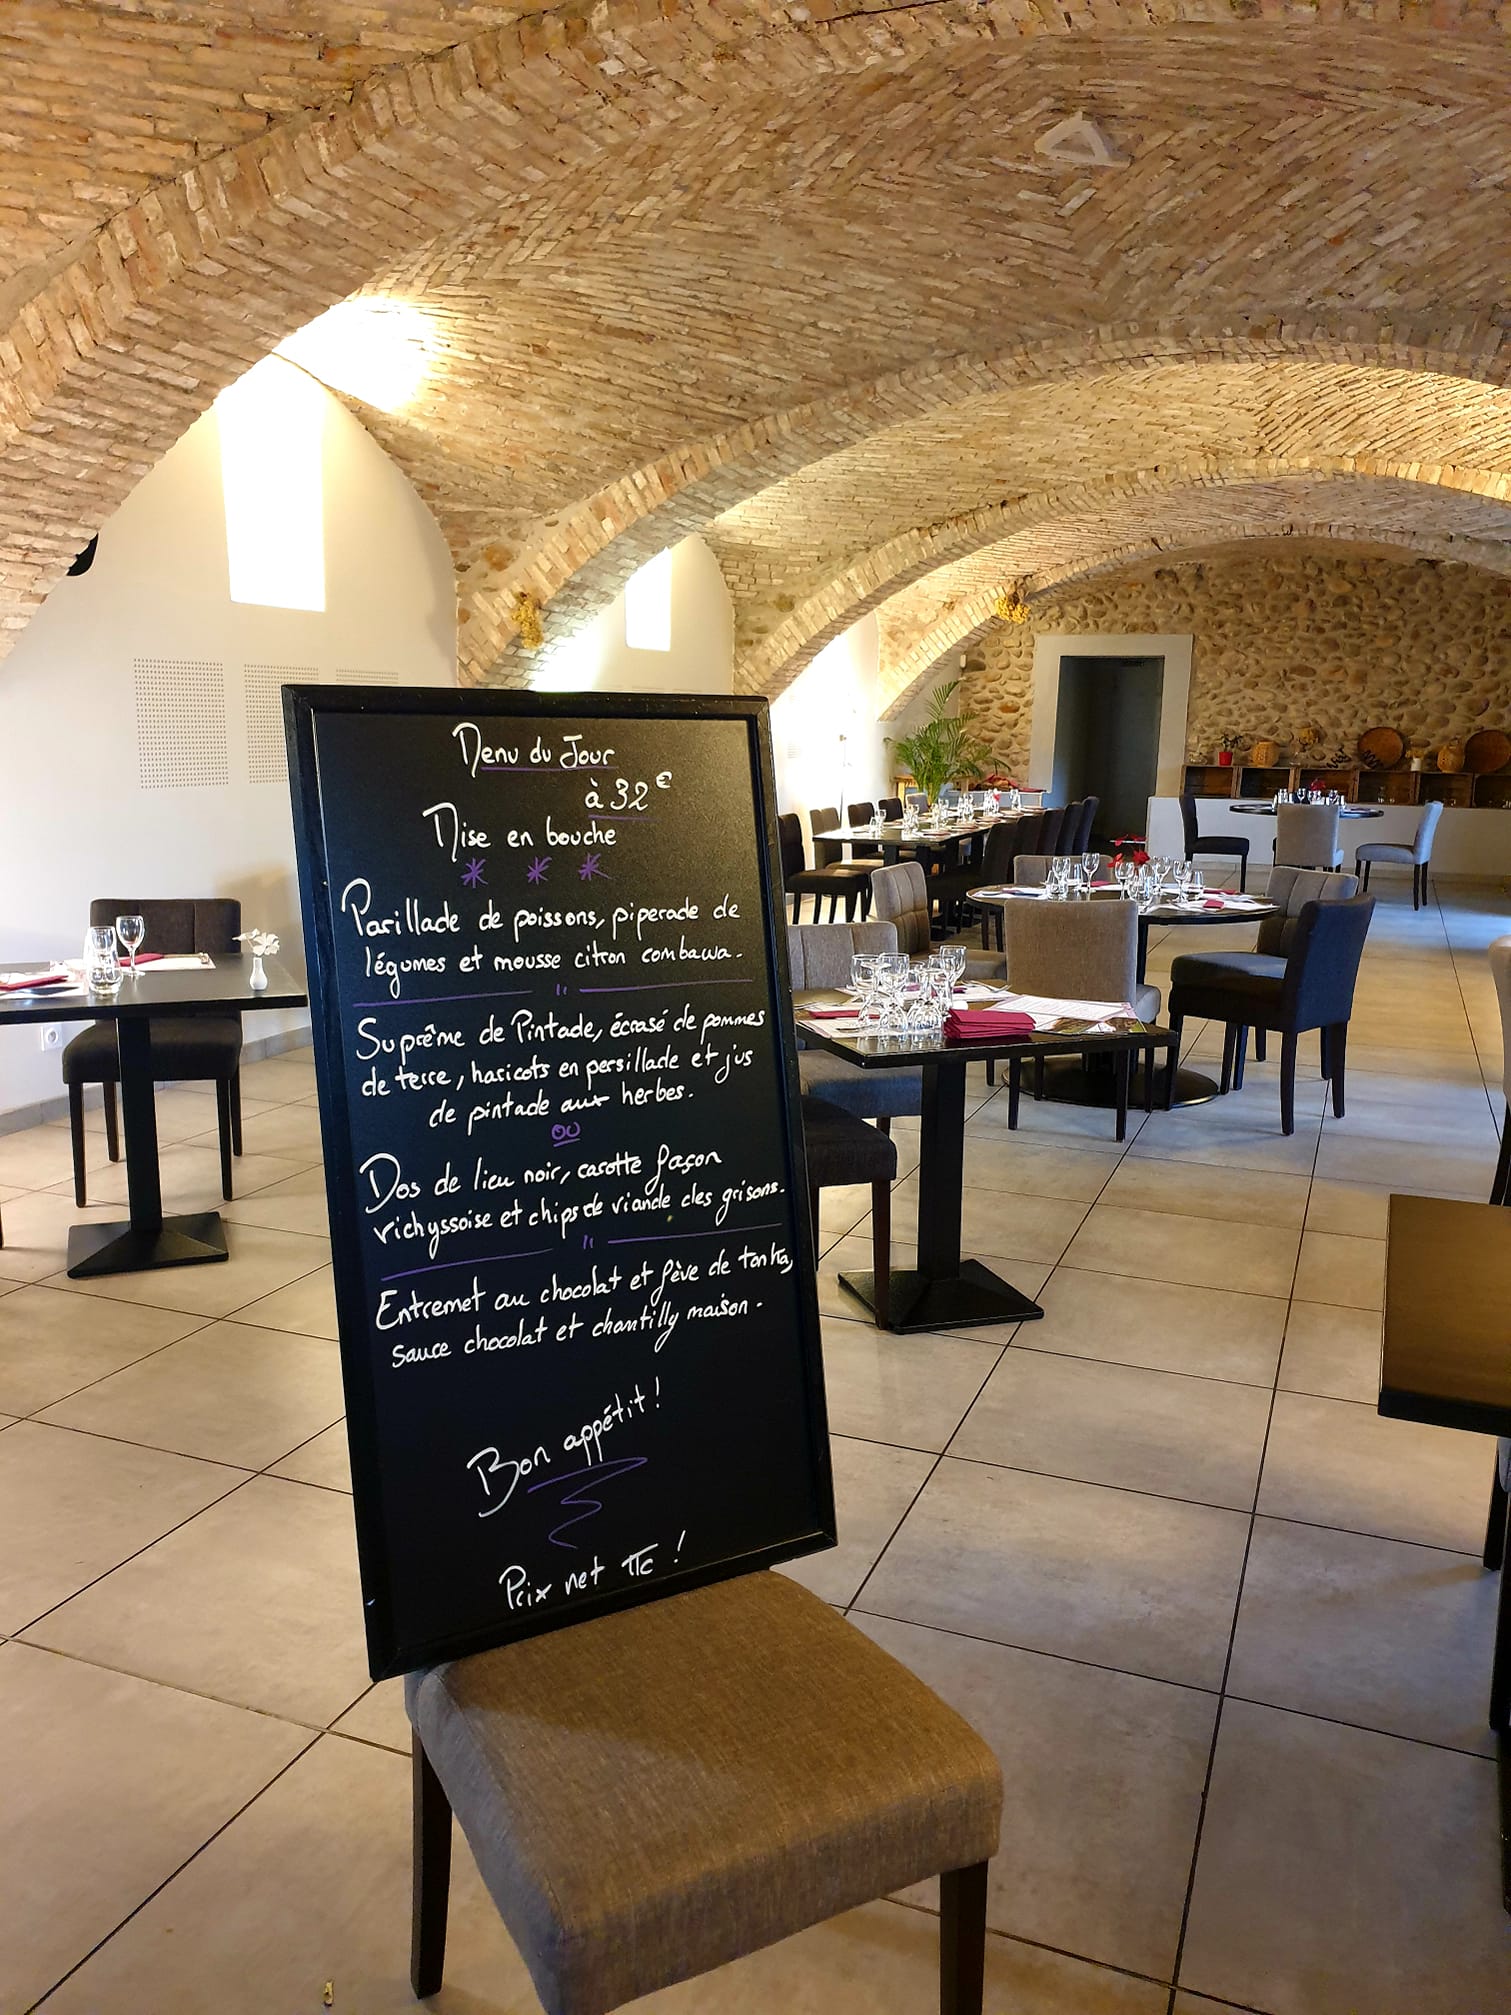 Menu du Jour
à 32€
Mise en bouche
Parillade de poissons, piperade de
légumes et mousse citron combawa.
Suprême de Pintade, écrasé de pommes
de terre, haricots en persillade et jus
de pintade aux herbes.
ou
Dos de lieu noir, carotte façon
vichyssoise et chips de viande des grisons.
Entremet au chocolat et fève de tonka,
sauce chocolat et chantilly maison.
Bon appétit !
Prix net TTC !